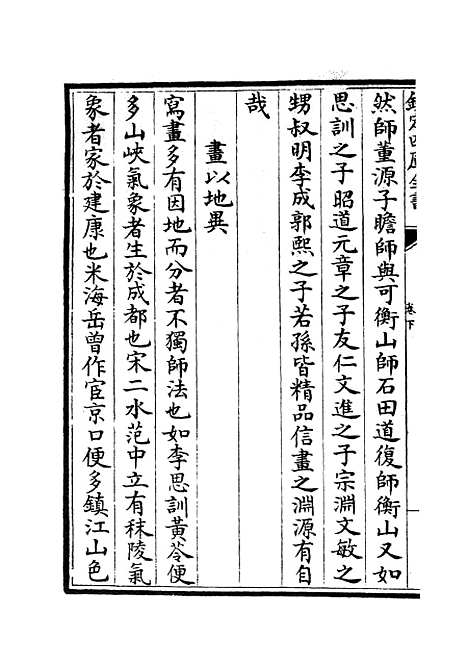 欽定四庫全書
卷下
然師董源子瞻師與可衡山師石田道復師衡山又如
思訓之子昭道元章之子友仁文進之子宗淵文敏之
甥叔明李成郭熙之子若孫皆精品信畫之淵源有自
哉
畫以地異
寫畫多有因地而分者不獨師法也如李思訓黃筌便
多山峽氣象者生於成都也宋二水范中立有秣陵氣
象者家於建康也米海岳曾作宦京口便多鎮江山色